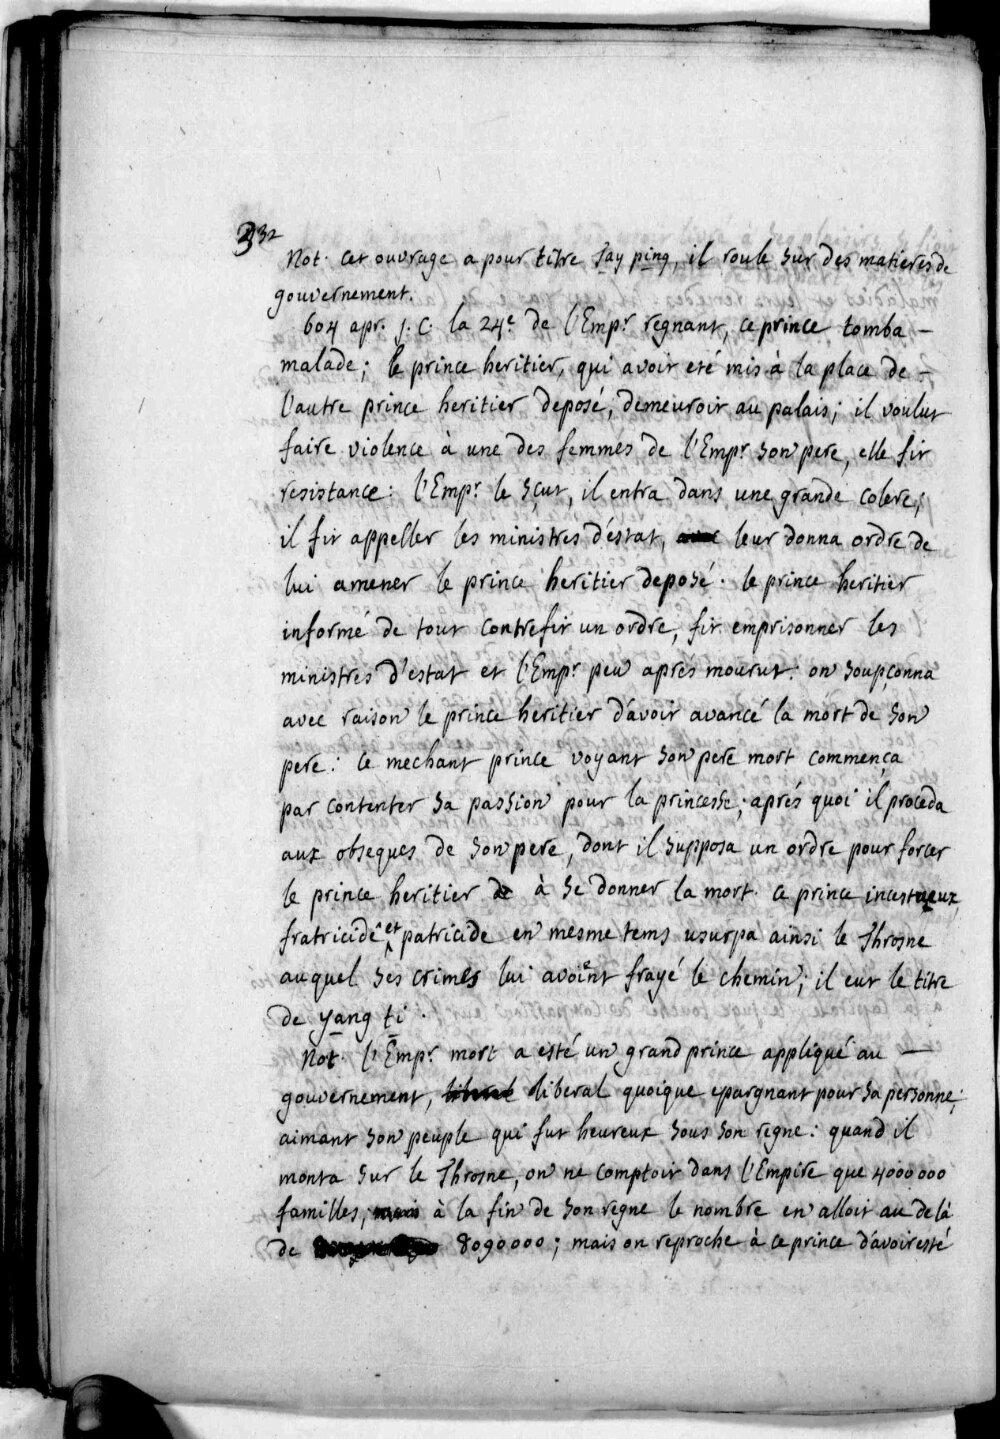 332
Not. cet ouvrage a pour titre Tay ping, il roule sur des matieres de
gouvernement.
604 apr. J. C. la 24e de l'Empr regnant, ce prince tomba –
malade; le prince heritier, qui avoit eté mis à la place de –
l'autre prince heritier deposé, demeuroit au palais; il voulut
faire violence à une des femmes de l'Empr son pere, elle fit
resistance: l'Empr le sçut, il entra dans une grande colere;
il fit appeller les ministres d'éstat, leur donna ordre de
lui amener le prince heritier deposé. le prince heritier
informé de tout contrefit un ordre, fit emprisonner les
ministres d'estat et l'Empr peu aprés mourut: on soupçonna
avec raison le prince heritier d'avoir avancé la mort de son
pere: ce mechant prince voyant son pere mort commença
par contenter sa passion pour la princesse; aprés quoi il proceda
aux obseques de son pere, dont il supposa un ordre pour forcer
le prince heritier de à se donner la mort. ce prince incestueux,
fratricide et patricide en mesme tems usurpa ainsi le Throsne
auquel ses crimes lui avoient frayé le chemin; il eut le titre
de yang ti.
Not. l'Empr mort a esté un grand prince appliqué au —
gouvernement, liberal liberal quoique epargnant pour sa personne;
aimant son peuple qui fut heureux sous son regne: quand il
monta sur le Throsne, on ne comptoit dans l'Empire que 4000000
familles, mais à la fin de son regne le nombre en alloit au delà
de 8090000; mais on reproche à ce prince d'avoir esté